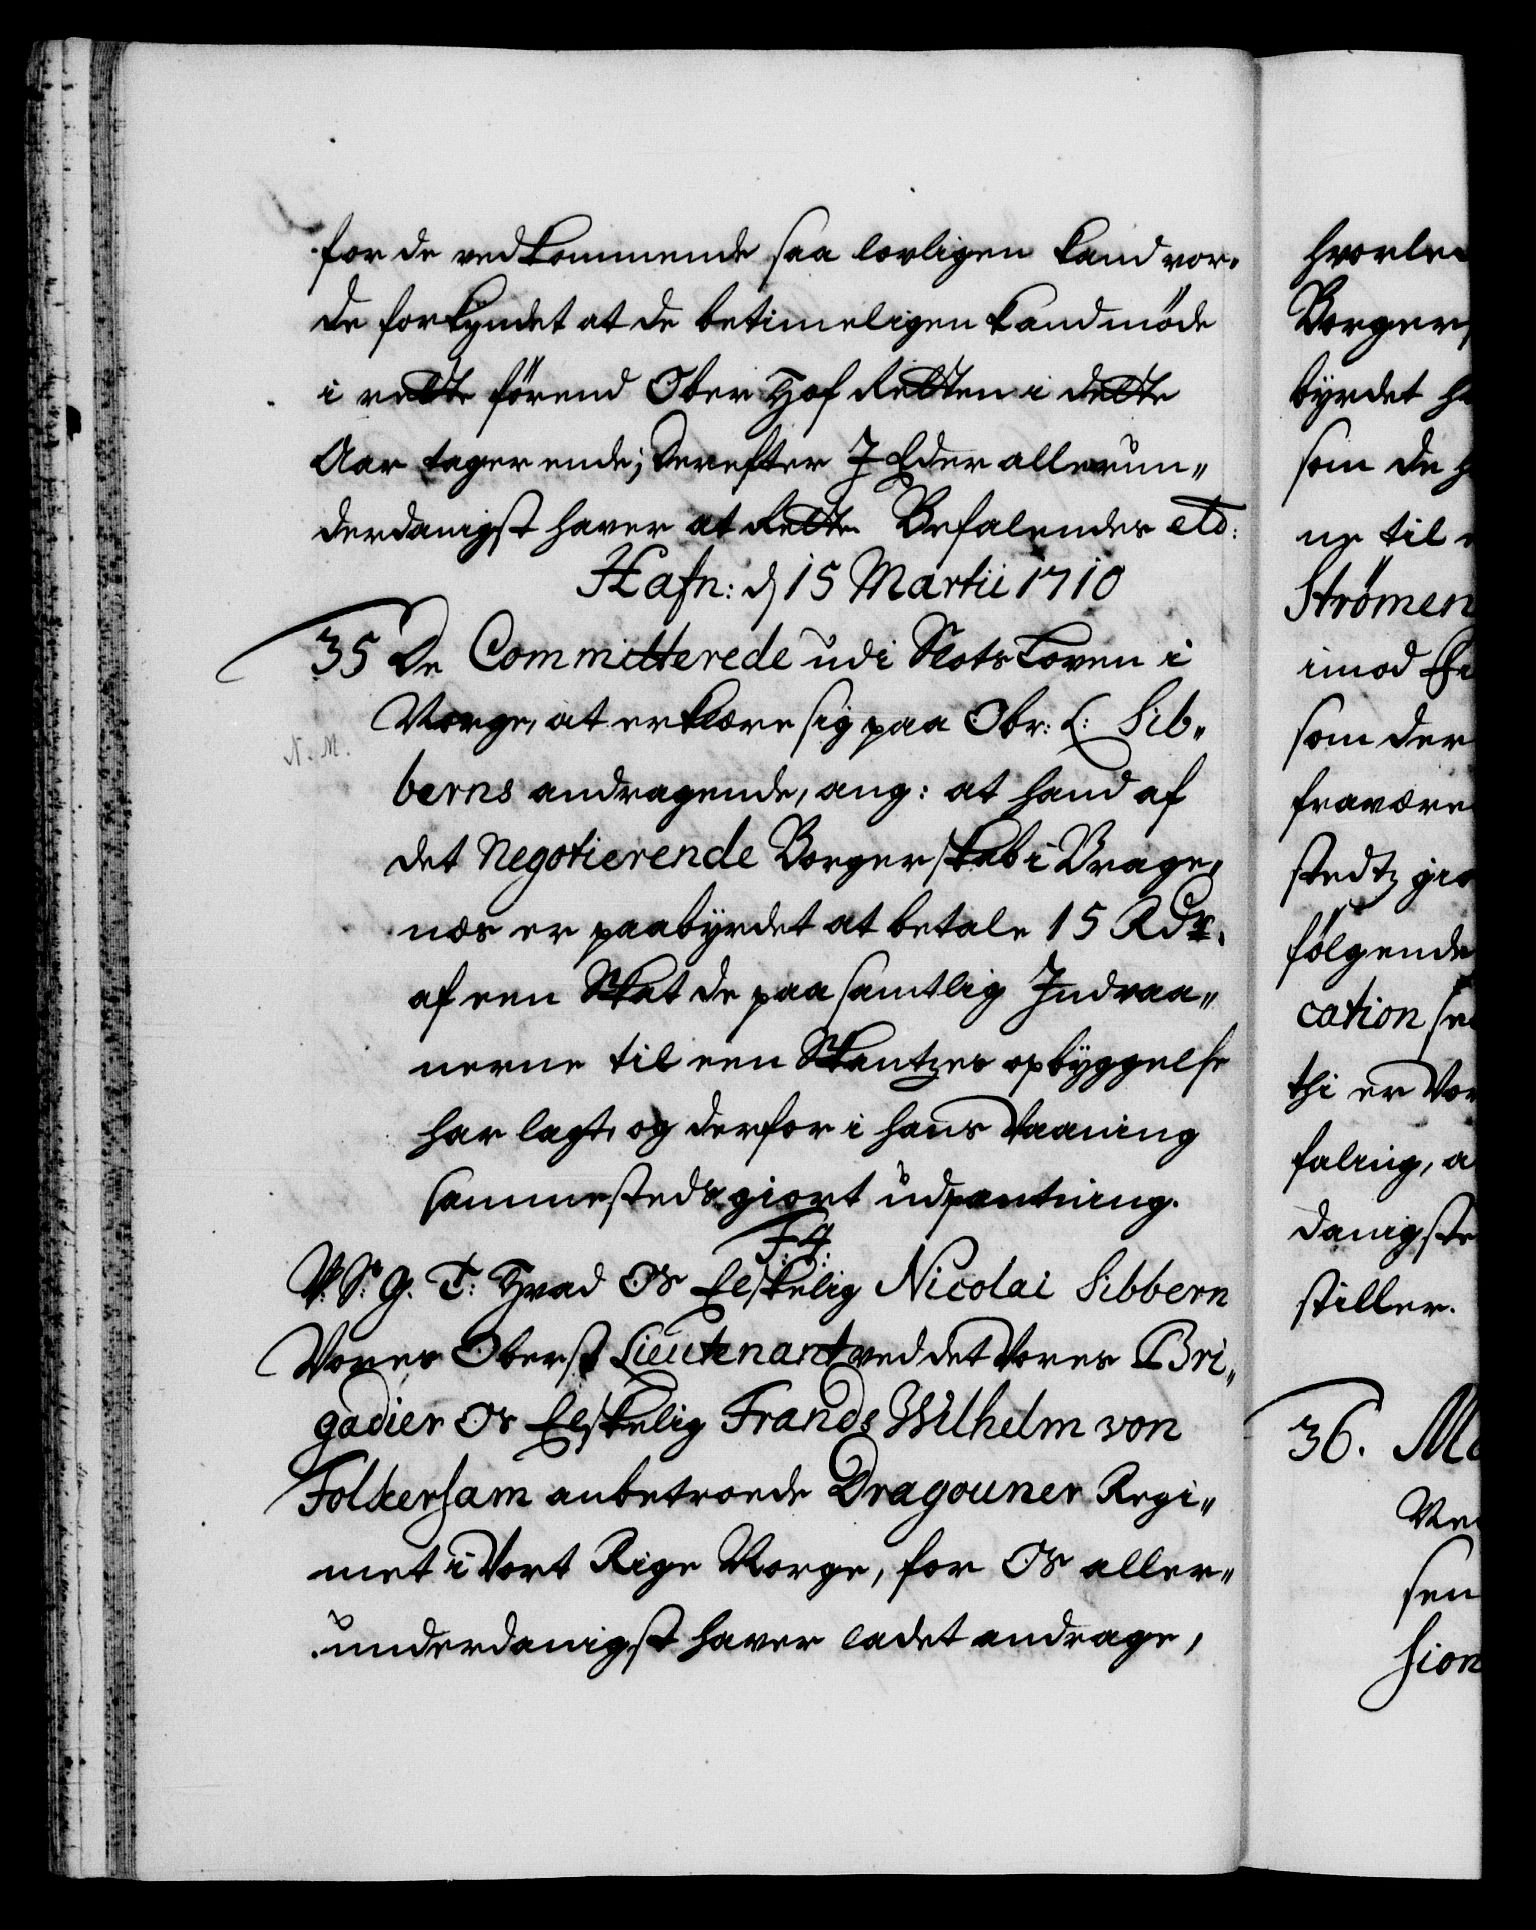 for de vedkommende saa lovligen kand vor,
de forkyndet at de betimeligen kand møde
i rette førend Ober Hof Retten i dette
Aar tager ende; Derefter I Eder allerun„
derdanigst haver at Rette. Befalendes etc:
Hafn: d 15 Martii 1710
35 De Committerede udi Slots Loven i
Norge, at erklære sig paa Obr: L: Sib„
N. M.
berns andragende, ang: at hand af
det Negotierende Borgerskab i Brage,
næs er paabyrdet at betale 15 Rdr.
af een Skat de paa samtlig Indvaa„
nerne til een Skantzes opbyggelse
har lagt, og derfor i hans Vaaning
sammesteds giort udpantning.
F: 4:
V. S. G. T: Hvad Os Elskelig Nicolai Sibbern
Vores Oberst Lieutenant ved det Vores Bri„
gadier Os Elskelig Frands Wilhelm von
Folkersam anbetroede Dragouner Regi„
met i Vort Rige Norge, for Os aller„
underdanigst haver ladet andrage,
Borger
byrdet
som de
ne til
Strömen
imod
som der
fravære
stedtz
følgende
cation
thi er
faling, a
danigste
stiller.
36.